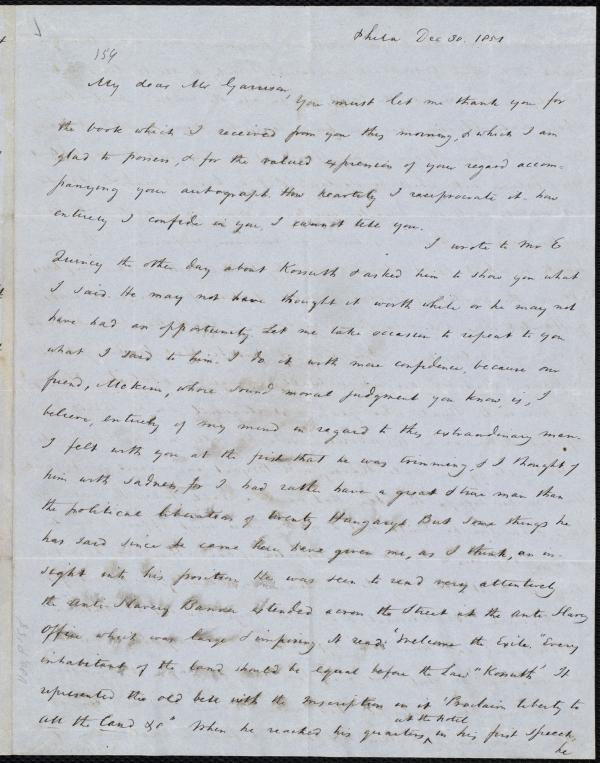 Phila Dec 30. 1851
154
My dear Mr Garrison,
You must let me thank you for
the book which I received from you this morning, & which I am
glad to possess, & for the valued expression of your regard accom-
panying your autograph. How heartily I reciprocate it - how
entirely I confide in you, I cannot tell you.
I wrote to Mr E
Quincy the other day about Kossuth & asked him to show you what
I said. He may not have thought it worth while or he may not
have had an opportunity. Let me take occasion to repeat to you
what I said to him. I do it with more confidence, because our
friend, McKim, whose sound moral judgment you know, is, I
believe, entirely of my mind in regard to this extraordinary man.
I felt with you at the first that he was trimming, & I thought of
him with sadness, for I had rather have a great & true man than
the political liberation of twenty Hungarys. But some things he
has said since he came here, have given me, as I think, an in-
sight into his position. He was seen to read very attentively
the Anti-Slavery Banner extended across the Street at the Anti Slavery
Office which was large & imposing. It read; 'Welcome the Exile. "Every
inhabitant of the land should be equal before the Law" Kossuth'. It
represented the old bell with the inscription on it 'Proclaim Liberty to
all the land &c" When he reached his quarters, in his first speech,
at the Hotel
he